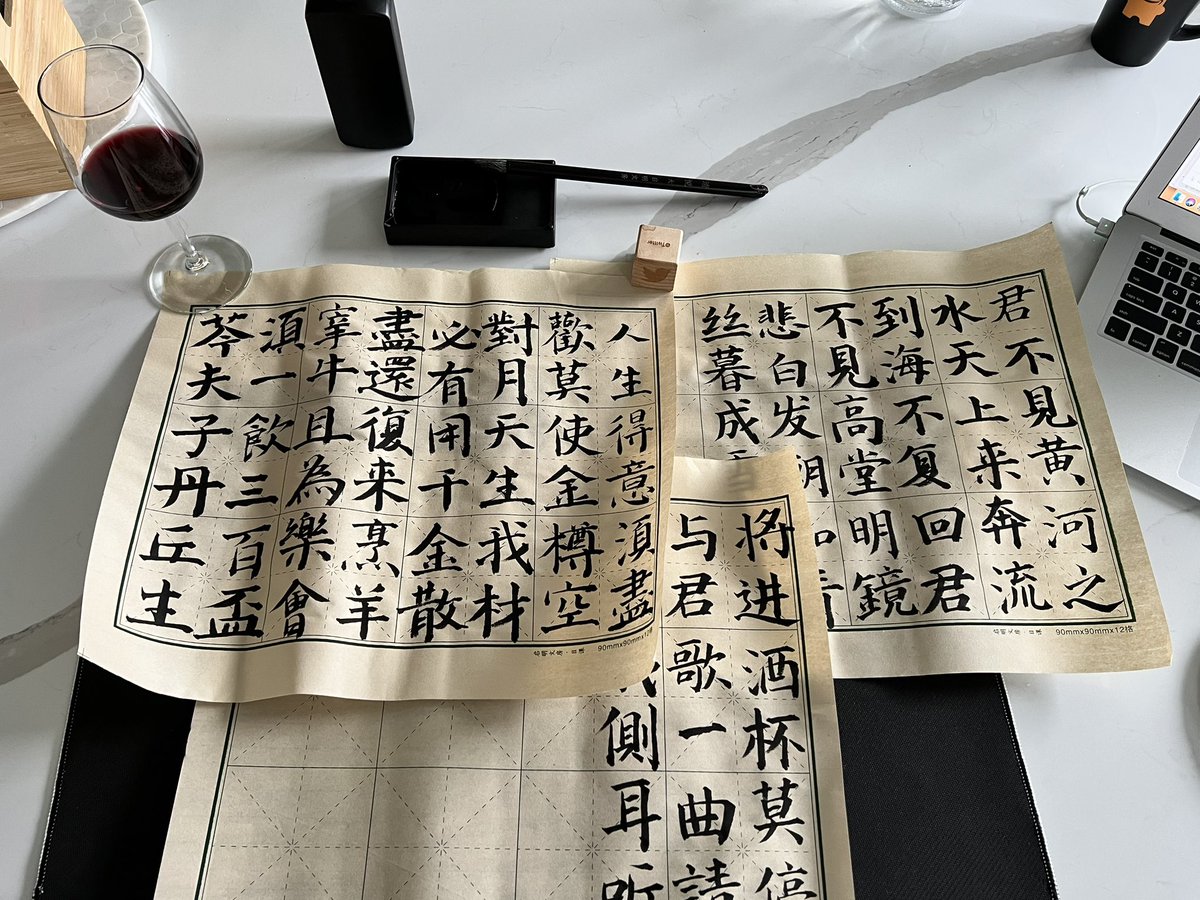 君不見黄河之
水天上来奔流
到海不复回君
不見高堂明鏡
悲白发
丝暮成
90mmx90mmx12格
人生得意湏盡
歡莫使金樽空
對月天生我材
必有用千金散
盡還復来烹羊
宰牛且為樂會
湏一飲三百盃
芩夫子丹丘生
90mmx90mmx12格
将进酒杯莫停
与君歌一曲請
側耳听
@Twitter